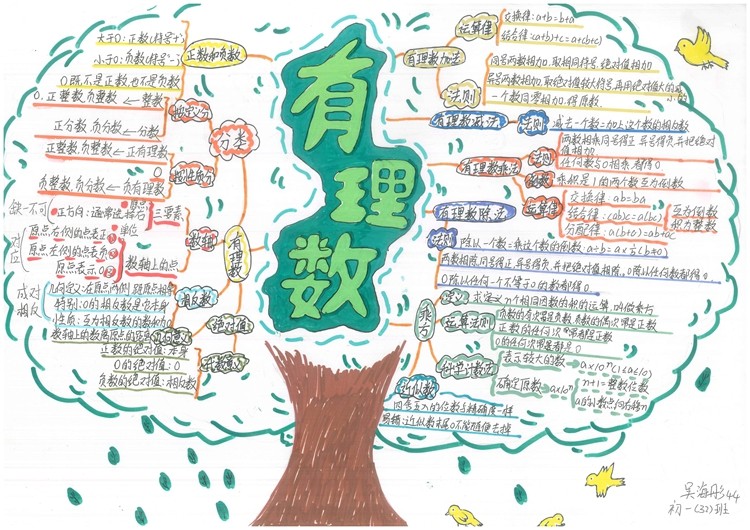 有理数
正数和负数
大于0:正数(符号+)
小于0:负数(符号-)
0既不是正数,也不是负数
分类
按定义分
0.正整数,负整数←整数
正分数,负分数←分数
按性质分
正整数,正分数←正有理数
0
负整数,负分数←负有理数
有理数
数轴
三要素
原点
缺一不可
正方向:通常选择右
单位
数轴上的点
对应
原点右侧的点表正
原点左侧的点表负
原点表示0
相反数
成对
相反
几何定义:在原点两侧,距原点相等
特别:0的相反数是它本身
性质:互为相反数的数和为0
绝对值
几何意义
代数意义
正数的绝对值:本身
0的绝对值:0
负数的绝对值:相反数
有理数加法
运算律
交换律:a+b=b+a
结合律:(a+b)+c=a+(b+c)
法则
同号两数相加,取相同符号,绝对值相加
一个数同零相加,得原数
有理数减法
法则
减去一个数=加上这个数的相反数
有理数乘法
法则
两数相乘同号得正,异号得负,并把绝对
值相加
任何数与0相乘都得0
倒数
乘积是1的两个数互为倒数
运算律
交换律:ab=ba
结合律:(ab)c=a(bc)
分配律:a(b+c)=ab+ac
有理数除法
互为倒数
积为整数
法则
除以一个数=乘这个数的倒数 a÷b=a×1/b(b≠0)
两数相除,同号得正,异号得负,并把绝对值相除,0除以任何数都得0
0除以任何一个不等于0的数都得0
乘方
定义
求n个相同因数的积的运算,叫做乘方
运算法则
负数的奇次幂是负数,负数的偶次幂是正数
正数的任何次幂都得正数
0的任何次幂都是0
科学计数法
表示较大的数→a×10ⁿ(1≤a≤10)
确定原数→a×10ⁿ
n+1=整数位数
a的小数点向右移n
近似数
四舍五入的位数与精确度一样
易错:近似数末尾0不能随便去掉
吴海彤44
初一(32)班